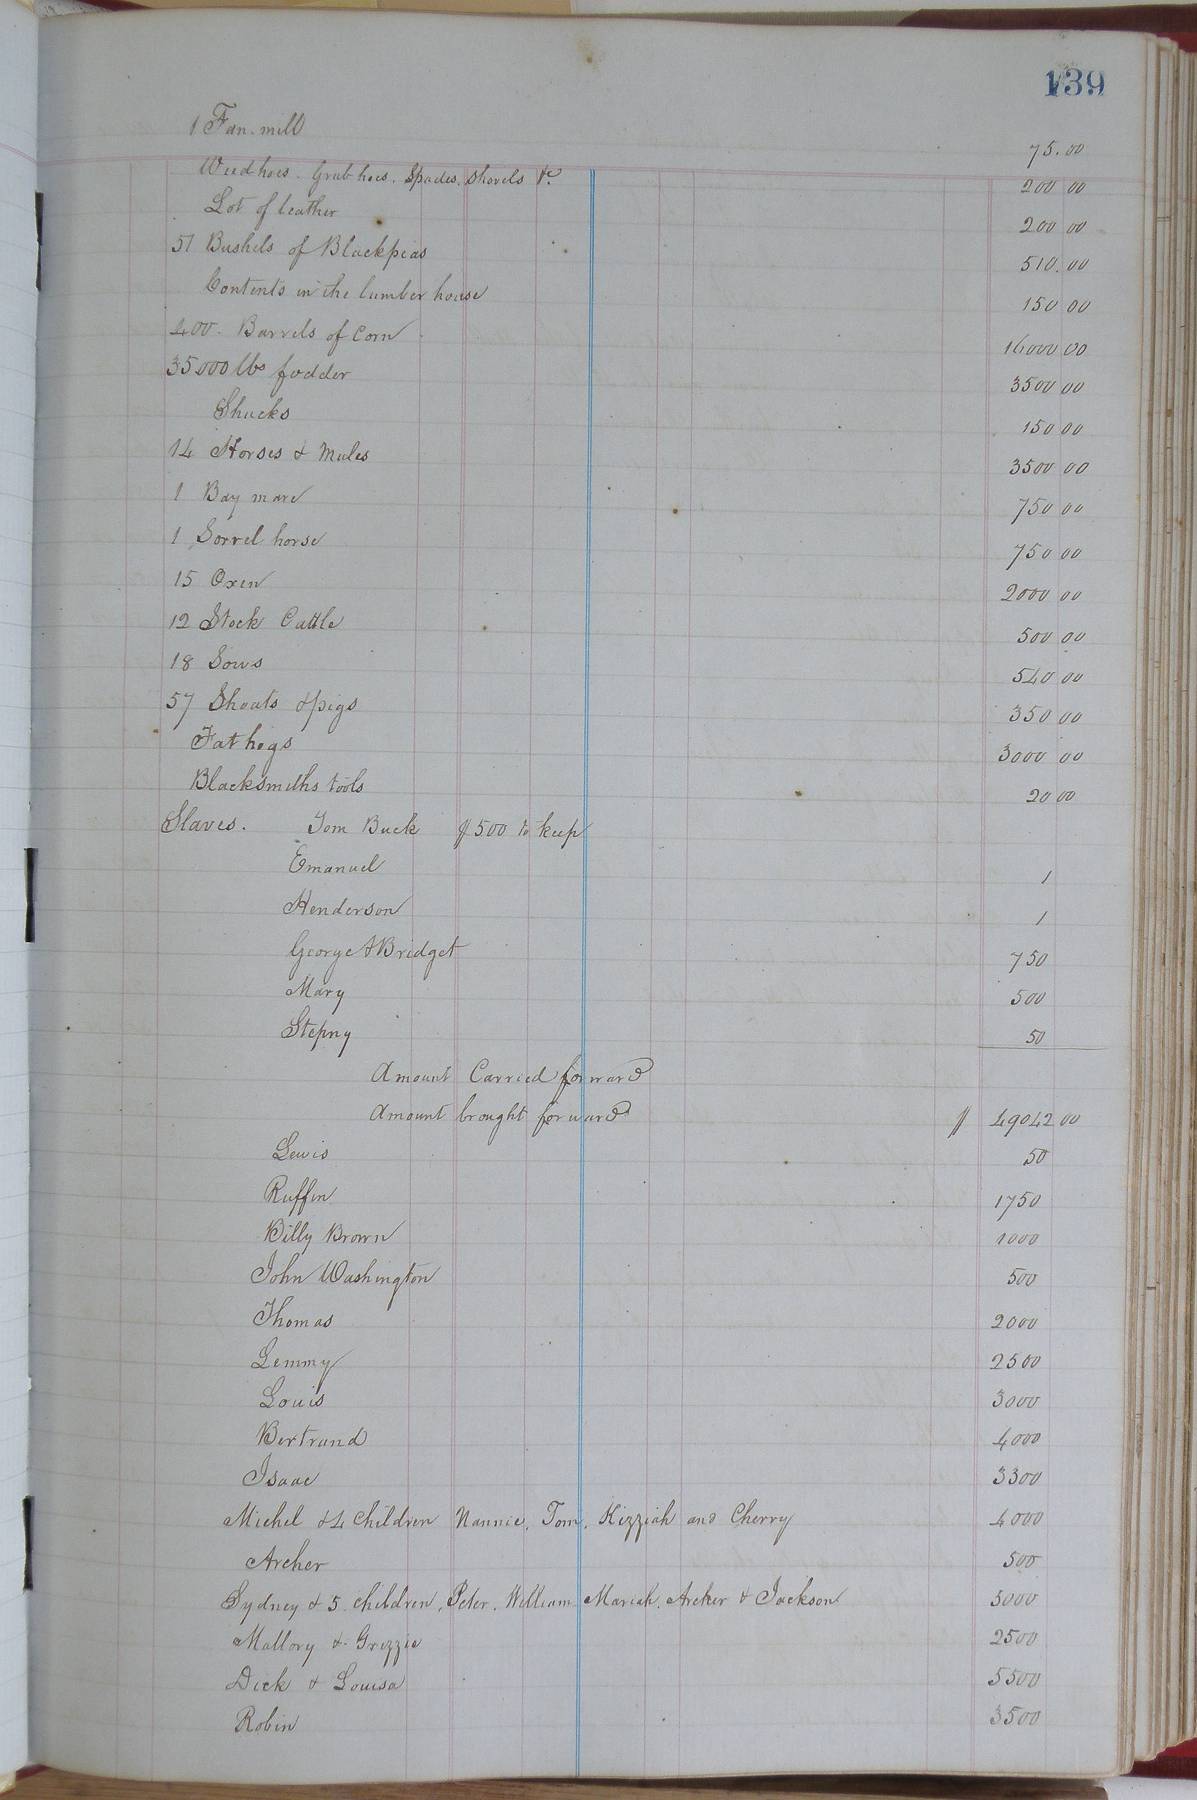 139
1 Fan. mill 75.00
Weedhoes. Grubhoes. Spades. Shovels &c. 200 00
Lot of leather 200 00
51 Bushels of Blackpeas 510.00
Contents in the lumber house 150 00
400. Barrels of Corn 16000 00
35000 lbs fodder 3500 00
Shucks 150 00
14 Horses & Mules 3500 00
1 Bay mare 750 00
1 Sorrel horse 750 00
15 Oxen 2000 00
12 Stock Cattle 500 00
18 Sows 540 00
57 Shoats & pigs 350 00
Fat hogs 3000 00
Blacksmiths tools 20 00
Slaves. Tom Buck $500 to keep
Emanuel 1
Henderson 1
George & Bridget 750
Mary 500
Stepny 50
Amount Carried forward
Amount brought forward $ 49042 00
Lewis 50
Ruffin 1750
Billy Brown 1000
John Washington 500
Thomas 2000
Lemmy 2500
Louis 3000
Bertrand 4000
Isaac 3300
Michel & 4 children Nannie, Tom, Kizziah and Cherry 4000
Archer 500
Sydney & 5 children, Peter, William Mariah, Archer & Jackson 5000
Mallory & Grizzie 2500
Dick & Louisa 5500
Robin 3500